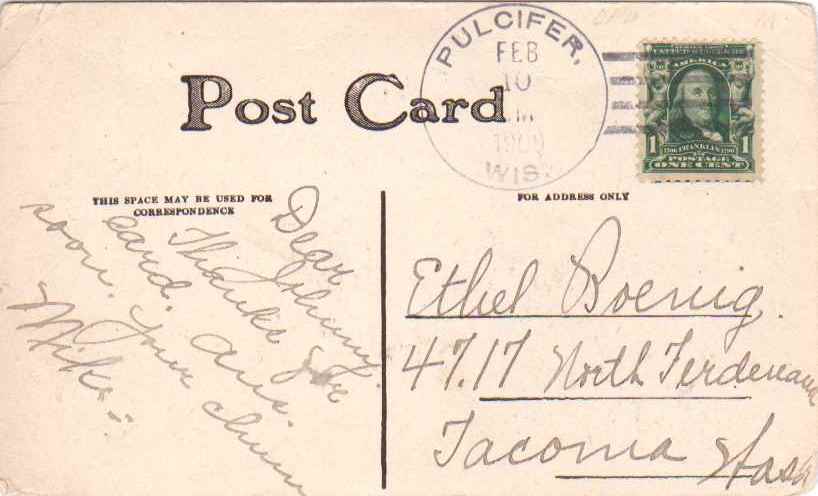 Post Card
PULCIFER,
FEB
10
M
1909
WIS.
UNITED STATES OF AMERICA
1 FRANKLIN 1
POSTAGE
ONE CENT
THIS SPACE MAY BE USED FOR
CORRESPONDENCE
FOR ADDRESS ONLY
Dear
Johnny.
Thanks for
card. Ans.
soon. Your chum
Mike
Ethel Boenig.
4717 North Ferdenand
Tacoma Wash